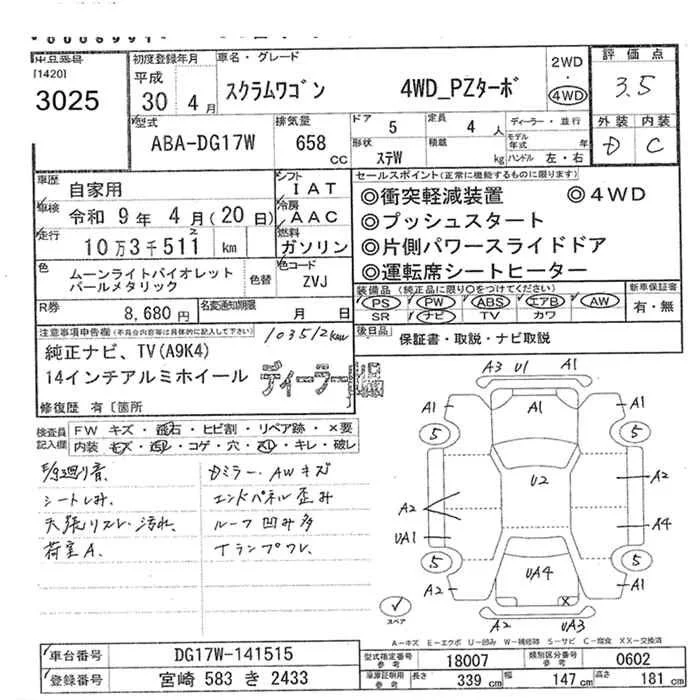 [1420]
3025
初度登録年月
平成
30年 4月
車名・グレード
スクラムワゴン 4WD_PZターボ
2WD
・
4WD
評価点
3.5
型式
ABA-DG17W
排気量
658 cc
ドア 5
定員 4 人
形状 ステW
積載 kg
ディーラー・並行
モデル年式 年
ハンドル 左・右
外装 内装
D C
車歴 自家用
シフト IAT
車検 令和 9年 4月(20日)
冷房 AAC
走行 10万3千511 km
2
燃料 ガソリン
色 ムーンライトバイオレット
パールメタリック
色替
色コード ZVJ
R券 8,680円
名変通知期限 月 日
セールスポイント(正常に機能するものに限ります)
◎衝突軽減装置 ◎4WD
◎プッシュスタート
◎片側パワースライドドア
◎運転席シートヒーター
装備品(純正品に限り○をつけてください)
PS PW ABS エアB AW
SR ナビ TV カワ
新車保証書
有・無
後日品 保証書・取説・ナビ取説
注意事項申告欄(不具合内容等は具体的に記入して下さい)
103512km
純正ナビ、TV(A9K4)
14インチアルミホイール
ディーラー
修復歴 有〔箇所
検査員
記入欄
FW キズ・飛石・ヒビ割・リペア跡・×要
内装 キズ・汚レ・コゲ・穴・スレ・キレ・破レ
シートしみ、
天張リスレ・汚れ、
荷室A、
Dミラー・AWキズ
エンドパネル歪み
ルーフ凹み多
A3 U1 A1
A1 A1 A1
5 5
U2
A2 A2
UA1 A4
5 5
UA4
A2 A1
X
A2 UA3
スペア
A-キズ E-エクボ U-凹み W-補修跡 S-サビ C-腐食 XX-交換済
車台番号 DG17W-141515
登録番号 宮崎 583 き 2433
型式指定番号
参考
18007
類別区分番号
参考
0602
車庫証明用
参考
長さ 339 cm
幅 147 cm
高さ 181 cm